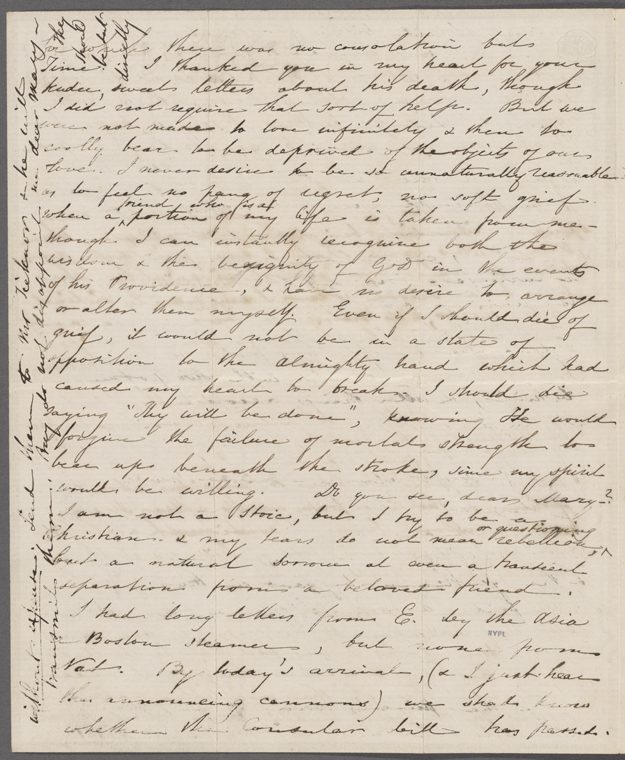 for whole there was no consolation but
Time. I thanked you in my heart for your
kind, sweet letters about his death, though
I did not require that sort of help. But we
were not made to love infinitely & then to
coolly bear to be deprived of the objects of our
love. I never desire to be so unnaturally reasonable
as to feel no pang of regret, no soft grief
when a portion of my life is taken from me -
friend who was
though I can instantly recognize both the
wisdom & the benignity of God in the events
of his Providence, & have no desire to arrange
or alter them myself. Even if I should die of
grief, it would not be in a state of
opposition to the almighty hand which had
caused my heart to break. I should die
saying "Thy will be done", knowing He would
forgive the failure of mortal strength to
bear up beneath the stroke, since my spirit
would be willing. Do you see, dear Mary?
I am not a Stoic, but I try to be a
Christian - & my tears do not mean rebellion,
or questioning
but a natural sorrow at even a transient
separation from a beloved friend.
I had long letters from E. by the Asia
- Boston steamer, but none from
Nat. By today's arrival, (& I just hear
the announcing cannons) we shall know
whether the Consular bill has passed.
without expense. Send them to Mr Ticknor & he will
transmit them. do not disappoint me dear Mary -
they
should
be sent
directly
NYPL